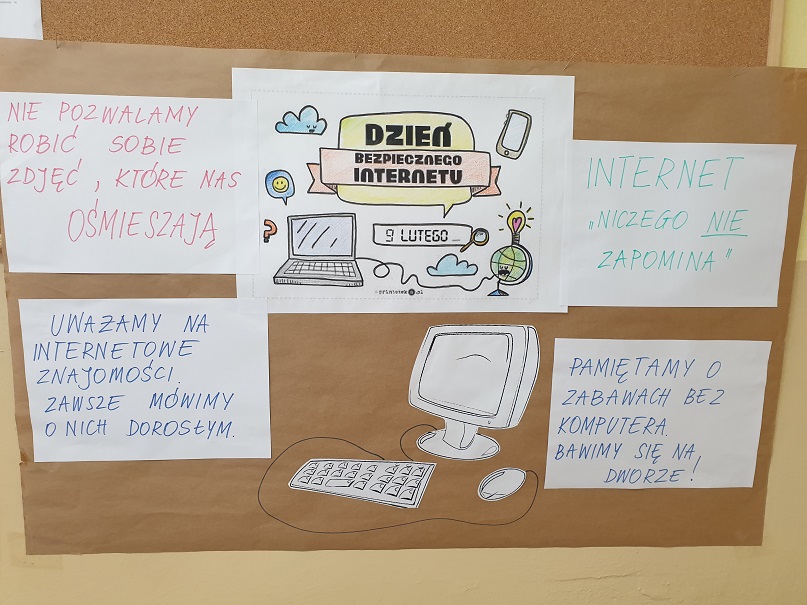 NIE POZWALAMY
ROBIĆ SOBIE
ZDJĘĆ, KTÓRE NAS
OŚMIESZAJĄ
DZIEŃ
BEZPIECZNEGO
INTERNETU
9 LUTEGO
printotek.pl
INTERNET
„NICZEGO NIE
ZAPOMINA"
UWAŻAMY NA
INTERNETOWE
ZNAJOMOŚCI.
ZAWSZE MÓWIMY
O NICH DOROSŁYM.
PAMIĘTAMY O
ZABAWACH BEZ
KOMPUTERA.
BAWIMY SIĘ NA
DWORZE!